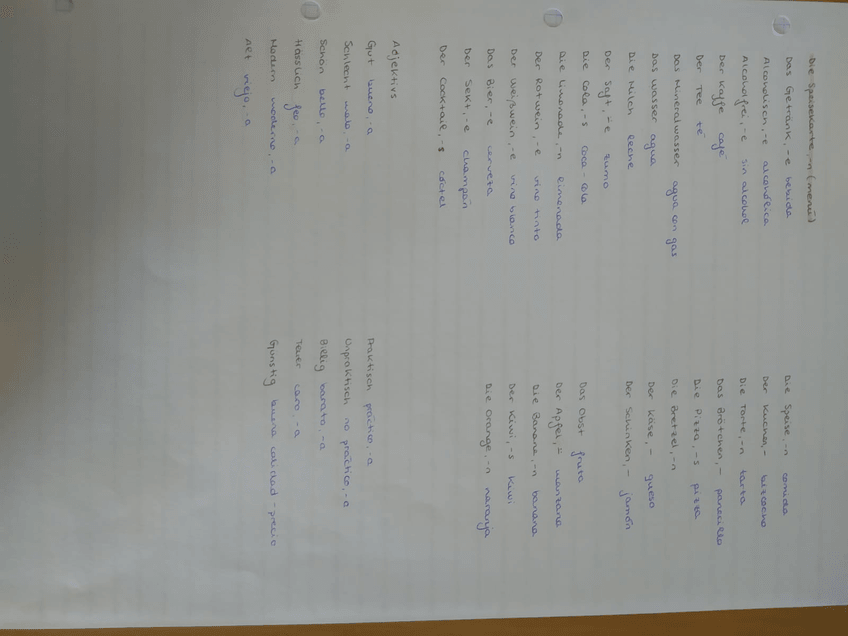 Die Speisekarte, -n (menú)
Das Getränk, -e bebida
Alcoholisch, -e alcohólica
Alcoholfrei, -e sin alcohol
Der Kaffe café
Der Tee té
Das Mineralwasser agua con gas
Das Wasser agua
Die Milch leche
Der Saft, -̈e zumo
Die Cola, -s coca-cola
Die Limonade, -n limonada
Der Rotwein, -e vino tinto
Der Weißwein, -e vino blanco
Das Bier, -e cerveta
Der Sekt, -e champán
Der Cocktail, -s cóctel
Die Speise, -n comida
Der Kuchen, - bizcocho
Die Torte, -n tarta
Das Brötchen, - panecillo
Die Pizza, -s pizza
Die Bretzel, -n
Der Käse, - queso
Der Schinken, - jamón
Das Obst fruta
Der Apfel, -̈ manzana
Die Banane, -n banana
Der Kiwi, -s kiwi
Die Orange, -n naranja
Adjektivs
Gut bueno, -a
Schlecht malo, -a
Schön bello, -a
Hässlich feo, -a
Modern moderno, -a
Alt viejo, -a
Praktisch práctico, -a
Unpraktisch no práctico, -a
Billig barato, -a
Teuer caro, -a
Günstig buena calidad-precio